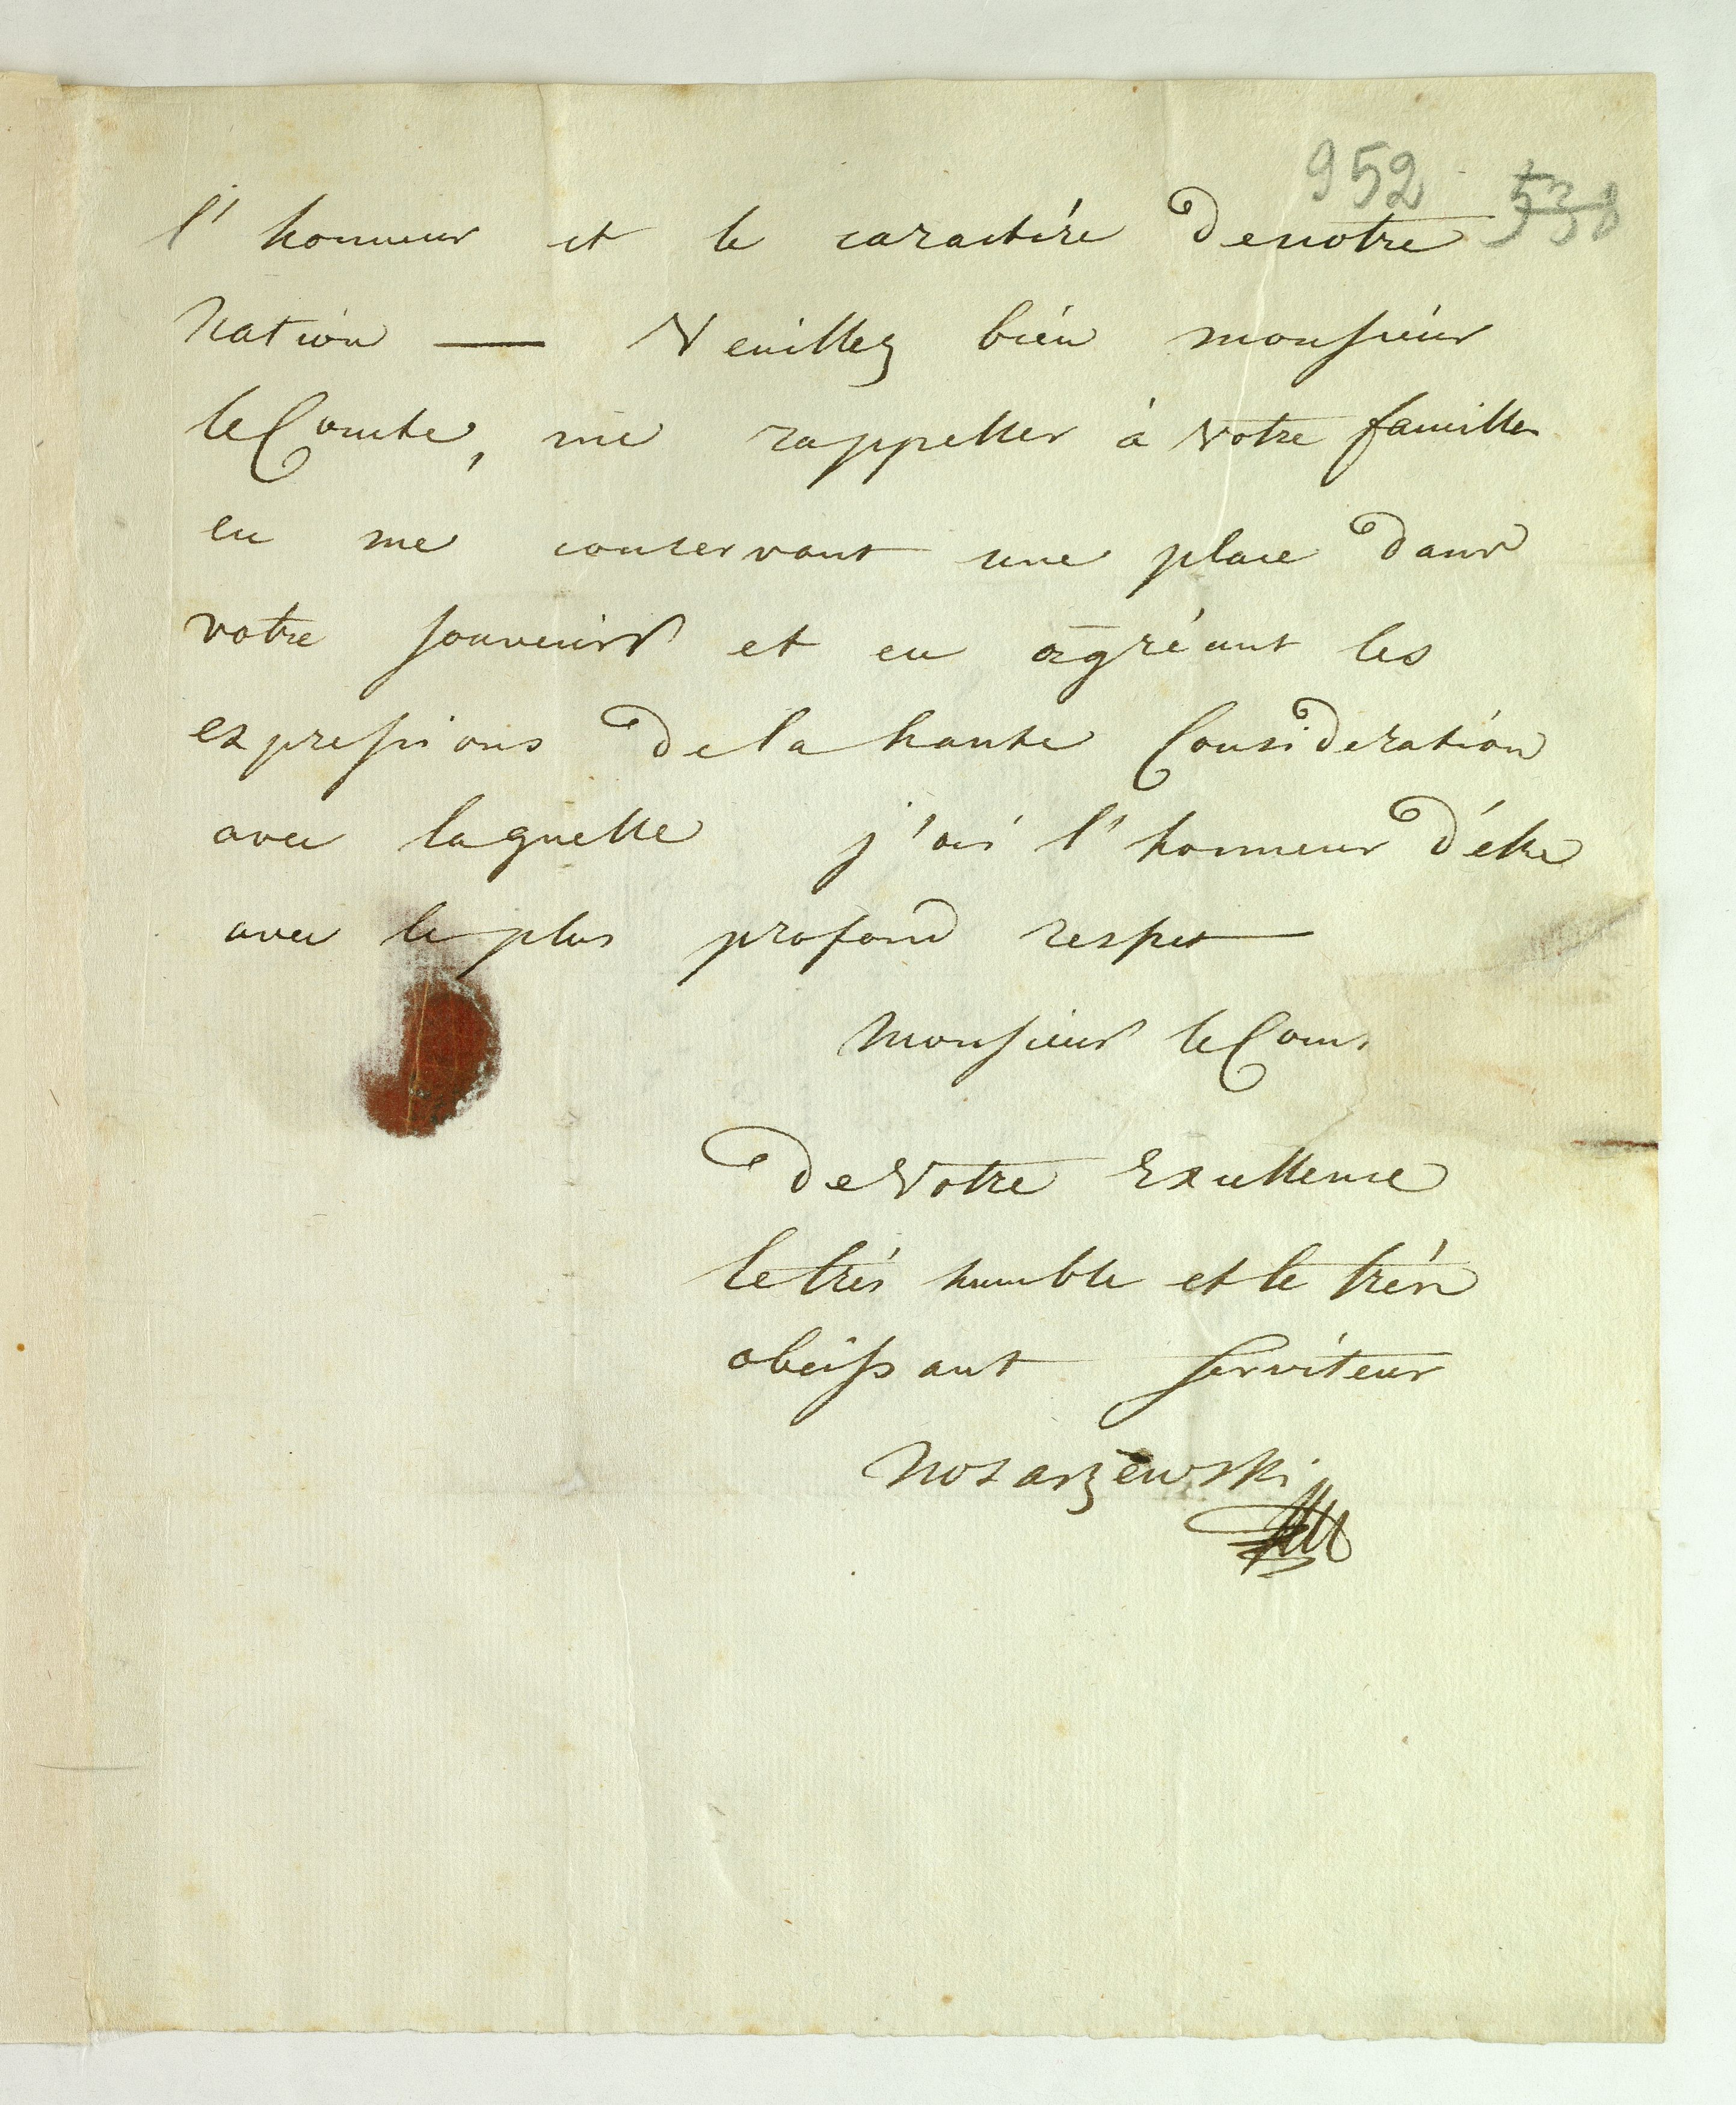 952 538
l'honneur et le caractére de notre
Nation — Veuillez bién monsieur
le Comte, me rappeller à votre famille
en me conservant une place dans
votre souvenir et en agréant les
expressions de la haute Consideration
avec laquelle j'ai l'honneur d'étre
avec le plus profond respet
Monsieur le Com
De Votre Excellence
le trés humble et le trés
obeissant serviteur
Nosarzewski